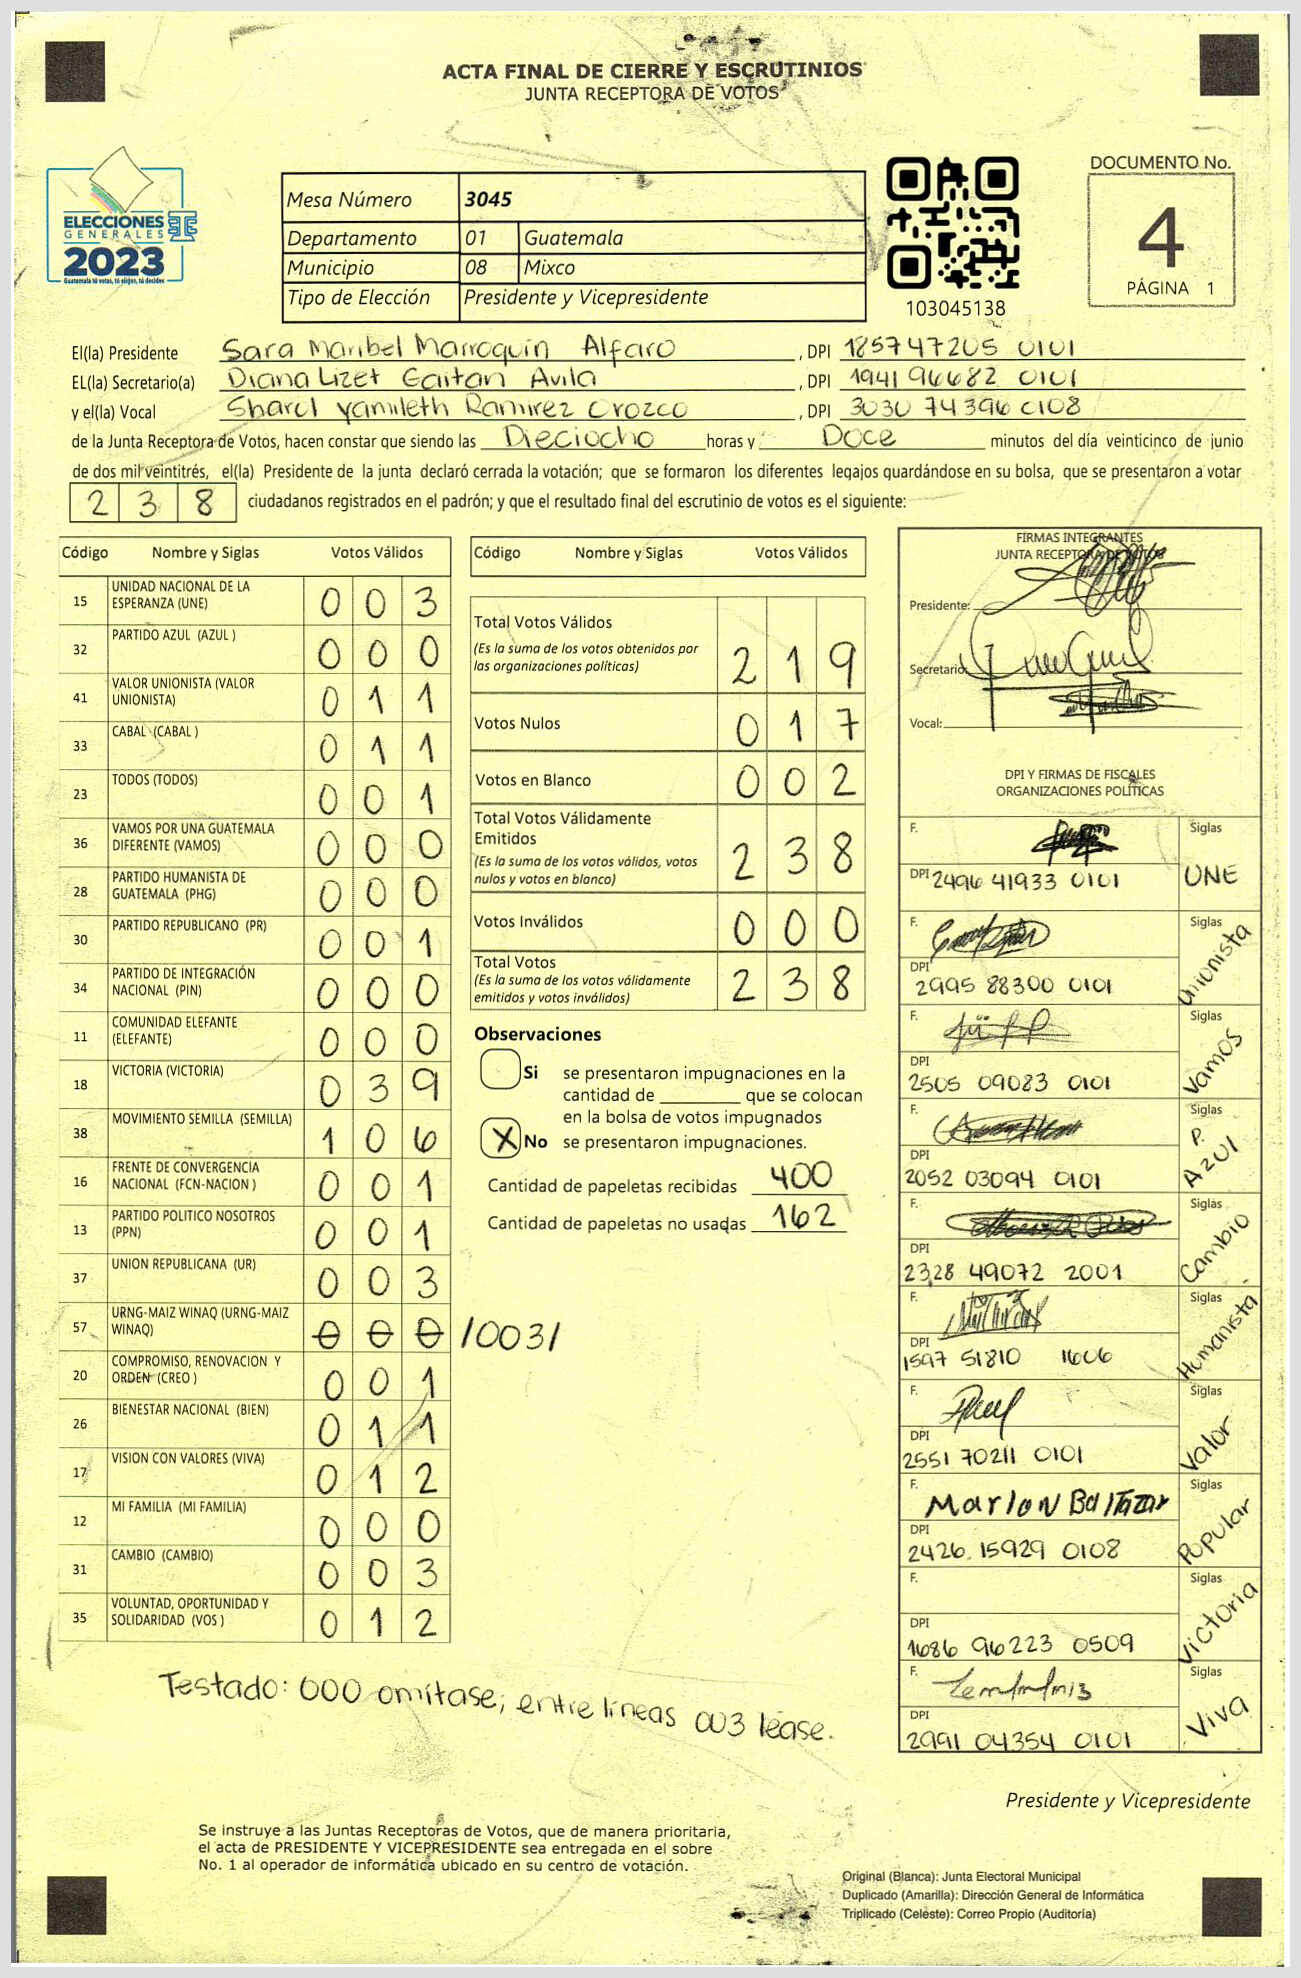 ACTA FINAL DE CIERRE Y ESCRUTINIOS
JUNTA RECEPTORA DE VOTOS
ELECCIONES
GENERALES
2023
Guatemala tú votas, tú eliges, tú decides
Mesa Número 3045
Departamento 01 Guatemala
Municipio 08 Mixco
Tipo de Elección Presidente y Vicepresidente
103045138
DOCUMENTO No.
4
PÁGINA 1
El(la) Presidente Sara Maribel Marroquin Alfaro , DPI 185747205 0101
EL(la) Secretario(a) Diana Lizet Gaitan Avila , DPI 1941 96682 0101
y el(la) Vocal Sharol Yamileth Ramirez Orozco , DPI 3030 74396 0108
de la Junta Receptora de Votos, hacen constar que siendo las Dieciocho horas y Doce minutos del día veinticinco de junio
de dos mil veintitrés, el(la) Presidente de la junta declaró cerrada la votación; que se formaron los diferentes legajos guardándose en su bolsa, que se presentaron a votar
2 3 8 ciudadanos registrados en el padrón; y que el resultado final del escrutinio de votos es el siguiente:
Código Nombre y Siglas Votos Válidos
15 UNIDAD NACIONAL DE LA ESPERANZA (UNE) 0 0 3
32 PARTIDO AZUL (AZUL ) 0 0 0
41 VALOR UNIONISTA (VALOR UNIONISTA) 0 1 1
33 CABAL (CABAL ) 0 1 1
23 TODOS (TODOS) 0 0 1
36 VAMOS POR UNA GUATEMALA DIFERENTE (VAMOS) 0 0 0
28 PARTIDO HUMANISTA DE GUATEMALA (PHG) 0 0 0
30 PARTIDO REPUBLICANO (PR) 0 0 1
34 PARTIDO DE INTEGRACIÓN NACIONAL (PIN) 0 0 0
11 COMUNIDAD ELEFANTE (ELEFANTE) 0 0 0
18 VICTORIA (VICTORIA) 0 3 9
38 MOVIMIENTO SEMILLA (SEMILLA) 1 0 6
16 FRENTE DE CONVERGENCIA NACIONAL (FCN-NACION ) 0 0 1
13 PARTIDO POLITICO NOSOTROS (PPN) 0 0 1
37 UNION REPUBLICANA (UR) 0 0 3
57 URNG-MAIZ WINAQ (URNG-MAIZ WINAQ) 0 0 0 /003/
20 COMPROMISO, RENOVACION Y ORDEN (CREO ) 0 0 1
26 BIENESTAR NACIONAL (BIEN) 0 1 1
17 VISION CON VALORES (VIVA) 0 1 2
12 MI FAMILIA (MI FAMILIA) 0 0 0
31 CAMBIO (CAMBIO) 0 0 3
35 VOLUNTAD, OPORTUNIDAD Y SOLIDARIDAD (VOS ) 0 1 2
Código Nombre y Siglas Votos Válidos
Total Votos Válidos
(Es la suma de los votos obtenidos por
las organizaciones políticas) 2 1 9
Votos Nulos 0 1 7
Votos en Blanco 0 0 2
Total Votos Válidamente
Emitidos
(Es la suma de los votos válidos, votos
nulos y votos en blanco) 2 3 8
Votos Inválidos 0 0 0
Total Votos
(Es la suma de los votos válidamente
emitidos y votos inválidos) 2 3 8
Observaciones
Si se presentaron impugnaciones en la
cantidad de ________ que se colocan
en la bolsa de votos impugnados
X No se presentaron impugnaciones.
Cantidad de papeletas recibidas 400
Cantidad de papeletas no usadas 162
FIRMAS INTEGRANTES
JUNTA RECEPTORA DE VOTOS
Presidente:
Secretario:
Vocal:
DPI Y FIRMAS DE FISCALES
ORGANIZACIONES POLÍTICAS
F. Siglas
DPI 2496 41933 0101 UNE
F. Siglas
DPI 2995 88300 0101 Unionista
F. Siglas
DPI 2505 09083 0101 Vamos
F. Siglas
DPI 2052 03094 0101 P. Azul
F. Siglas
DPI 2328 49072 2001 Cambio
F. Siglas
DPI 1597 51810 1606 Humanista
F. Siglas
DPI 2551 70211 0101 Valor
F. Marlon Baltazar Siglas
DPI 2426 15929 0108 Popular
F. Siglas
DPI 1686 96223 0509 Victoria
F. Siglas
DPI 2991 04354 0101 Viva
Testado: 000 omitase; entre lineas 003 léase.
Presidente y Vicepresidente
Se instruye a las Juntas Receptoras de Votos, que de manera prioritaria,
el acta de PRESIDENTE Y VICEPRESIDENTE sea entregada en el sobre
No. 1 al operador de informática ubicado en su centro de votación.
Original (Blanca): Junta Electoral Municipal
Duplicado (Amarilla): Dirección General de Informática
Triplicado (Celeste): Correo Propio (Auditoría)